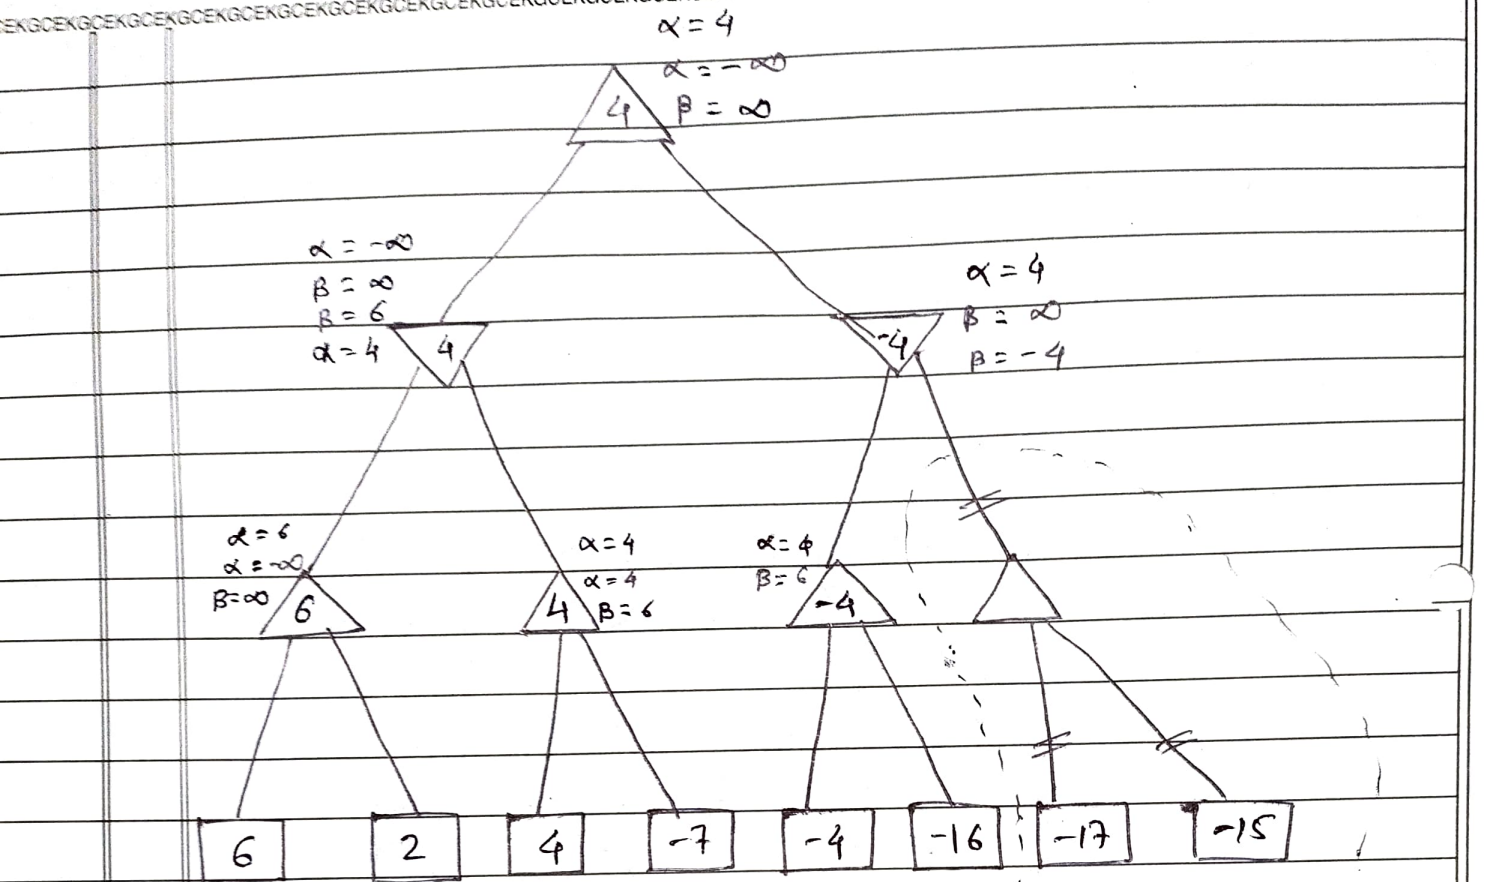 CEKGCEKGCEKGCEKGCEKGCEKGCEKGCEKGCEKGCEKGCEKGCEKGCEKG
α = 4
α = -∞
4
β = ∞
α = -∞
β = ∞
β = 6
α = 4
4
α = 4
β = ∞
-4
β = -4
α = 6
α = -∞
β = ∞
6
α = 4
α = 4
4
β = 6
α = 4
β = 6
-4
6 2 4 -7 -4 -16 -17 -15